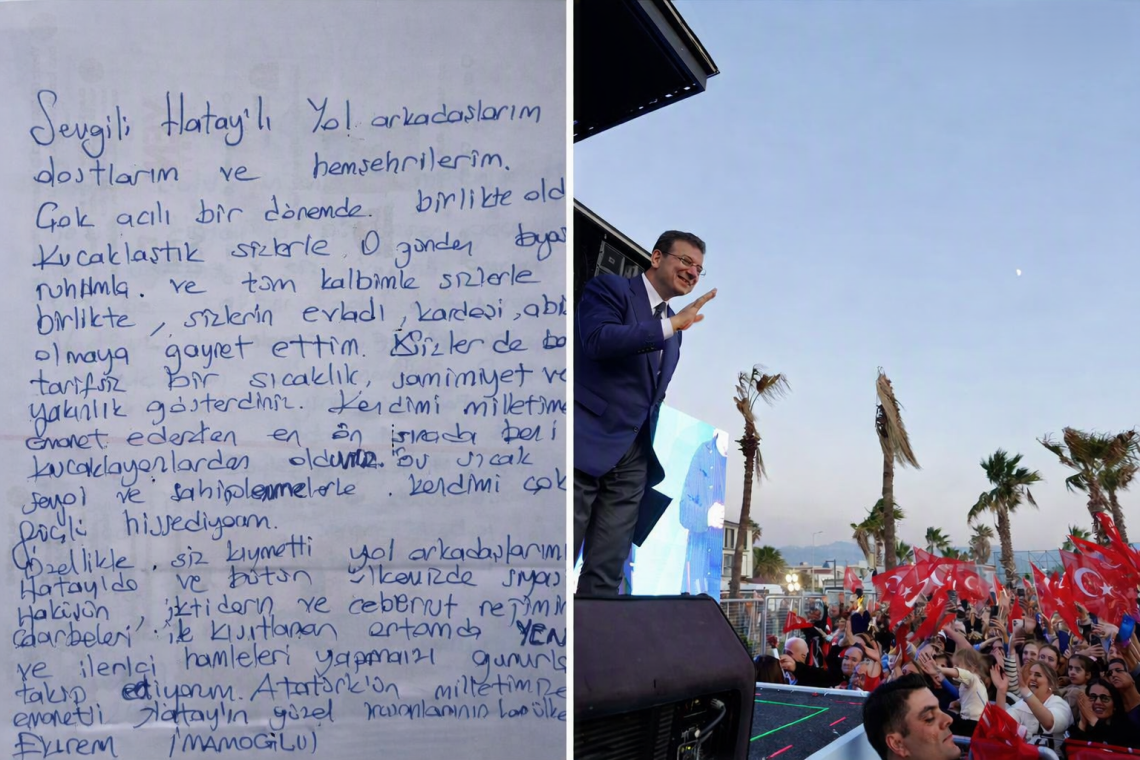 Sevgili Hatay'lı Yol arkadaşlarım
dostlarım ve hemşehrilerim.
Çok acılı bir dönemde. birlikte old
Kucaklaştık sizlerle. O günden
ruhumla. ve tüm kalbimle sizlerle
birlikte, sizlerin evladı, kardeşi, abi
olmaya gayret ettim. Sizler de ba
tarifsiz bir sıcaklık, samimiyet ve
yakınlık gösterdiniz. Kendimi milletime
emanet ederken en ön sırada beni
kucaklayanlardan oldunuz. Bu sıcak
sevgi ve sahiplenmelerle. kendimi çok
güçlü hissediyorum.
Özellikle, siz kıymetli yol arkadaşlarımı
Hatay'da ve bütün ülkemizde siyas
Hakkın, iktidarın ve ceberrut rejimin
darbeleri ile kısıtlanan ortamda YEN
ve ilerici hamleleri yapmanızı gururla
takip ediyorum. Atatürk'ün milletimize
emaneti Hatay'ın güzel insanlarının
Ekrem İMAMOĞLU